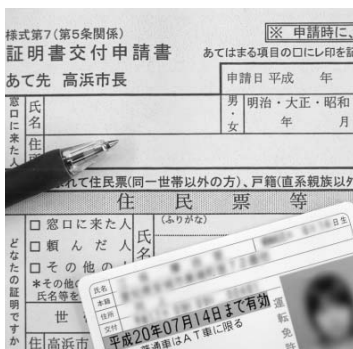 様式第7(第5条関係)
※ 申請時に、
証明書交付申請書
あてはまる項目の□にレ印を記
あて先 高浜市長
申請日 平成 年
窓口に来た人
氏名
男・女
明治・大正・昭和
年 月
住
れて住民票(同一世帯以外の方)、戸籍(直系親族以外
住民票等
どなたの証明ですか
□ 窓口に来た人
□ 頼んだ人
□ その他の
*その他の
氏名等を
氏名
(ふりがな)
世
住
高浜市
氏名
日生
本籍
住所
交付
平成20年07月14日まで有効
普通車はAT車に限る
運転免許